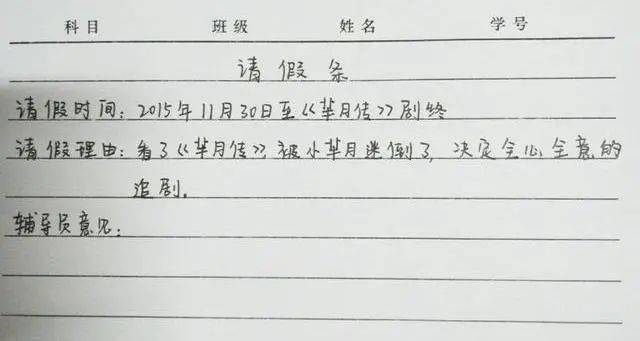 科目 班级 姓名 学号
请假条
请假时间：2015年11月30日至《芈月传》剧终
请假理由：看了《芈月传》被小芈月迷倒了，决定全心全意的
追剧。
辅导员意见：